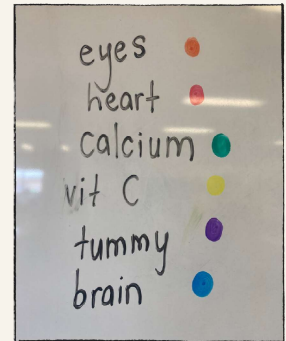 eyes
heart
calcium
vit C
tummy
brain